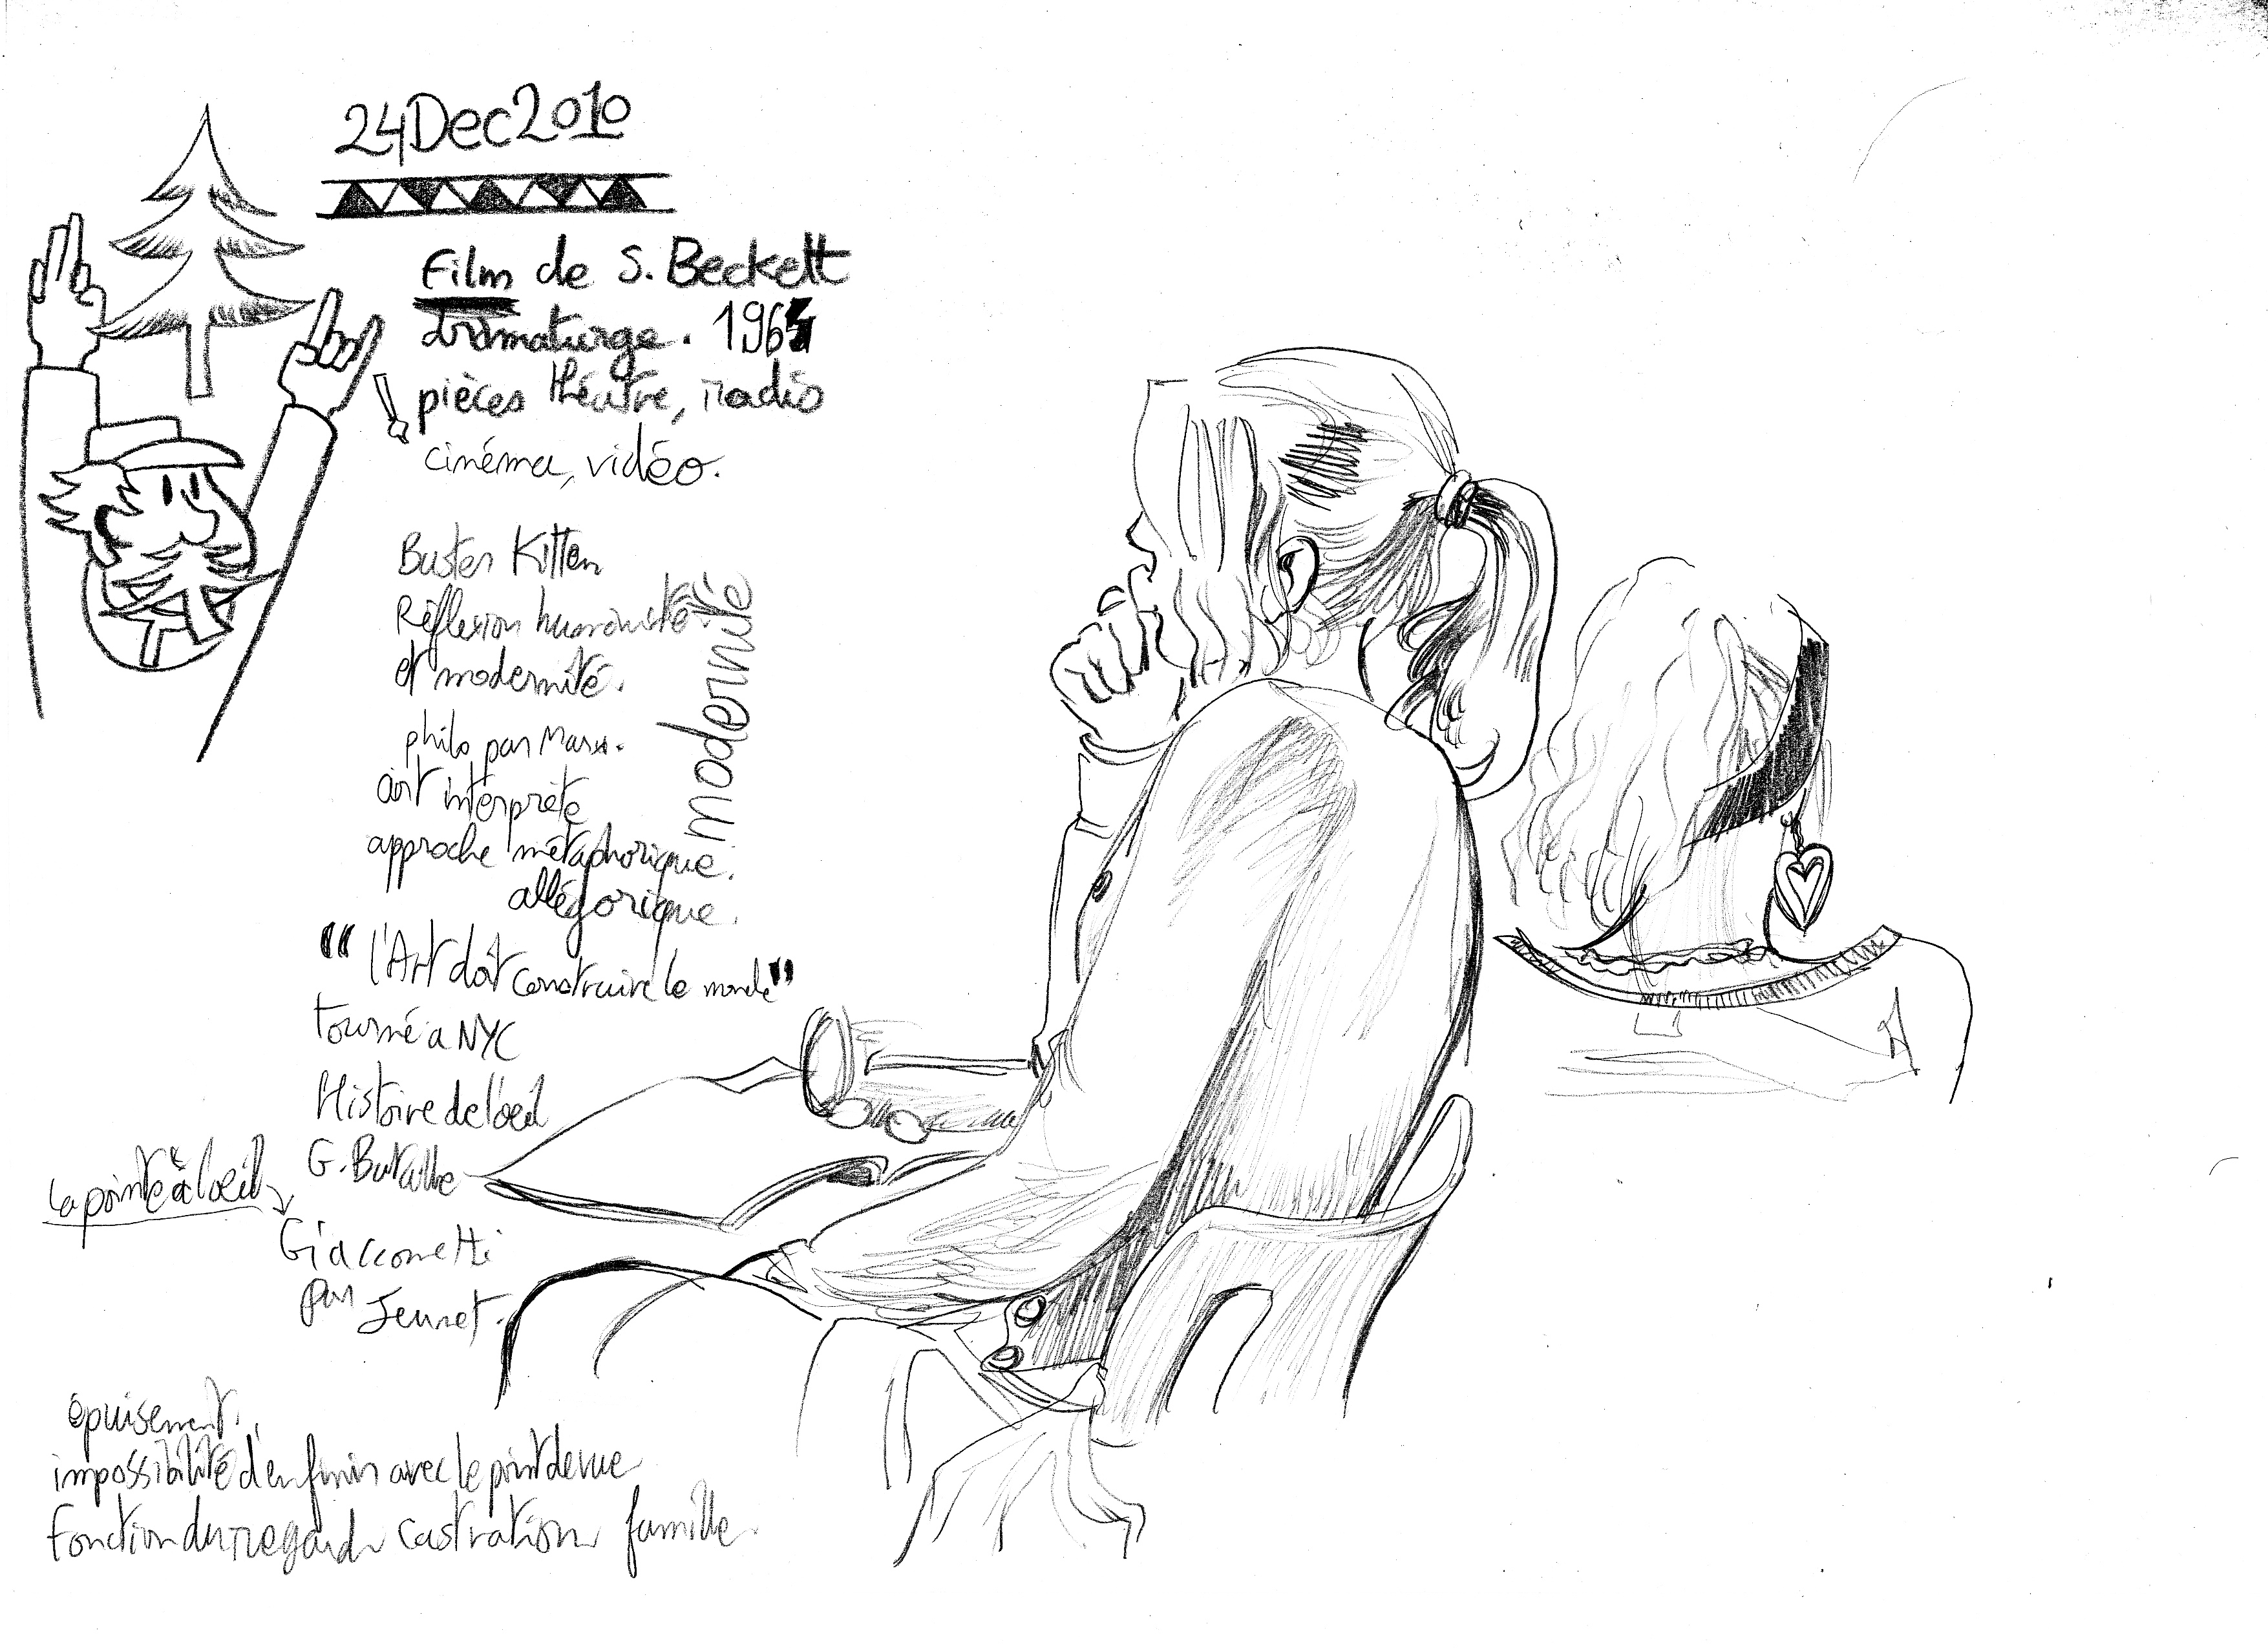 24 Dec 2010
Film de S. Beckett
dramaturge. 1964
pièces théâtre, radio
cinéma, vidéo.
Buster Kitten
Réflexion humaniste
et modernité.
modernité
philo par Marx.
art interprète
approche métaphorique.
allégorique.
"l'Art doit construire le monde"
tourné a NYC
Histoire de l'oeil
G. Bataille
la pointe à l'oeil
Giaccometti
par Jeunet.
épuisement.
impossibilité d'en finir avec le point de vue
Fonction du regard castration famille